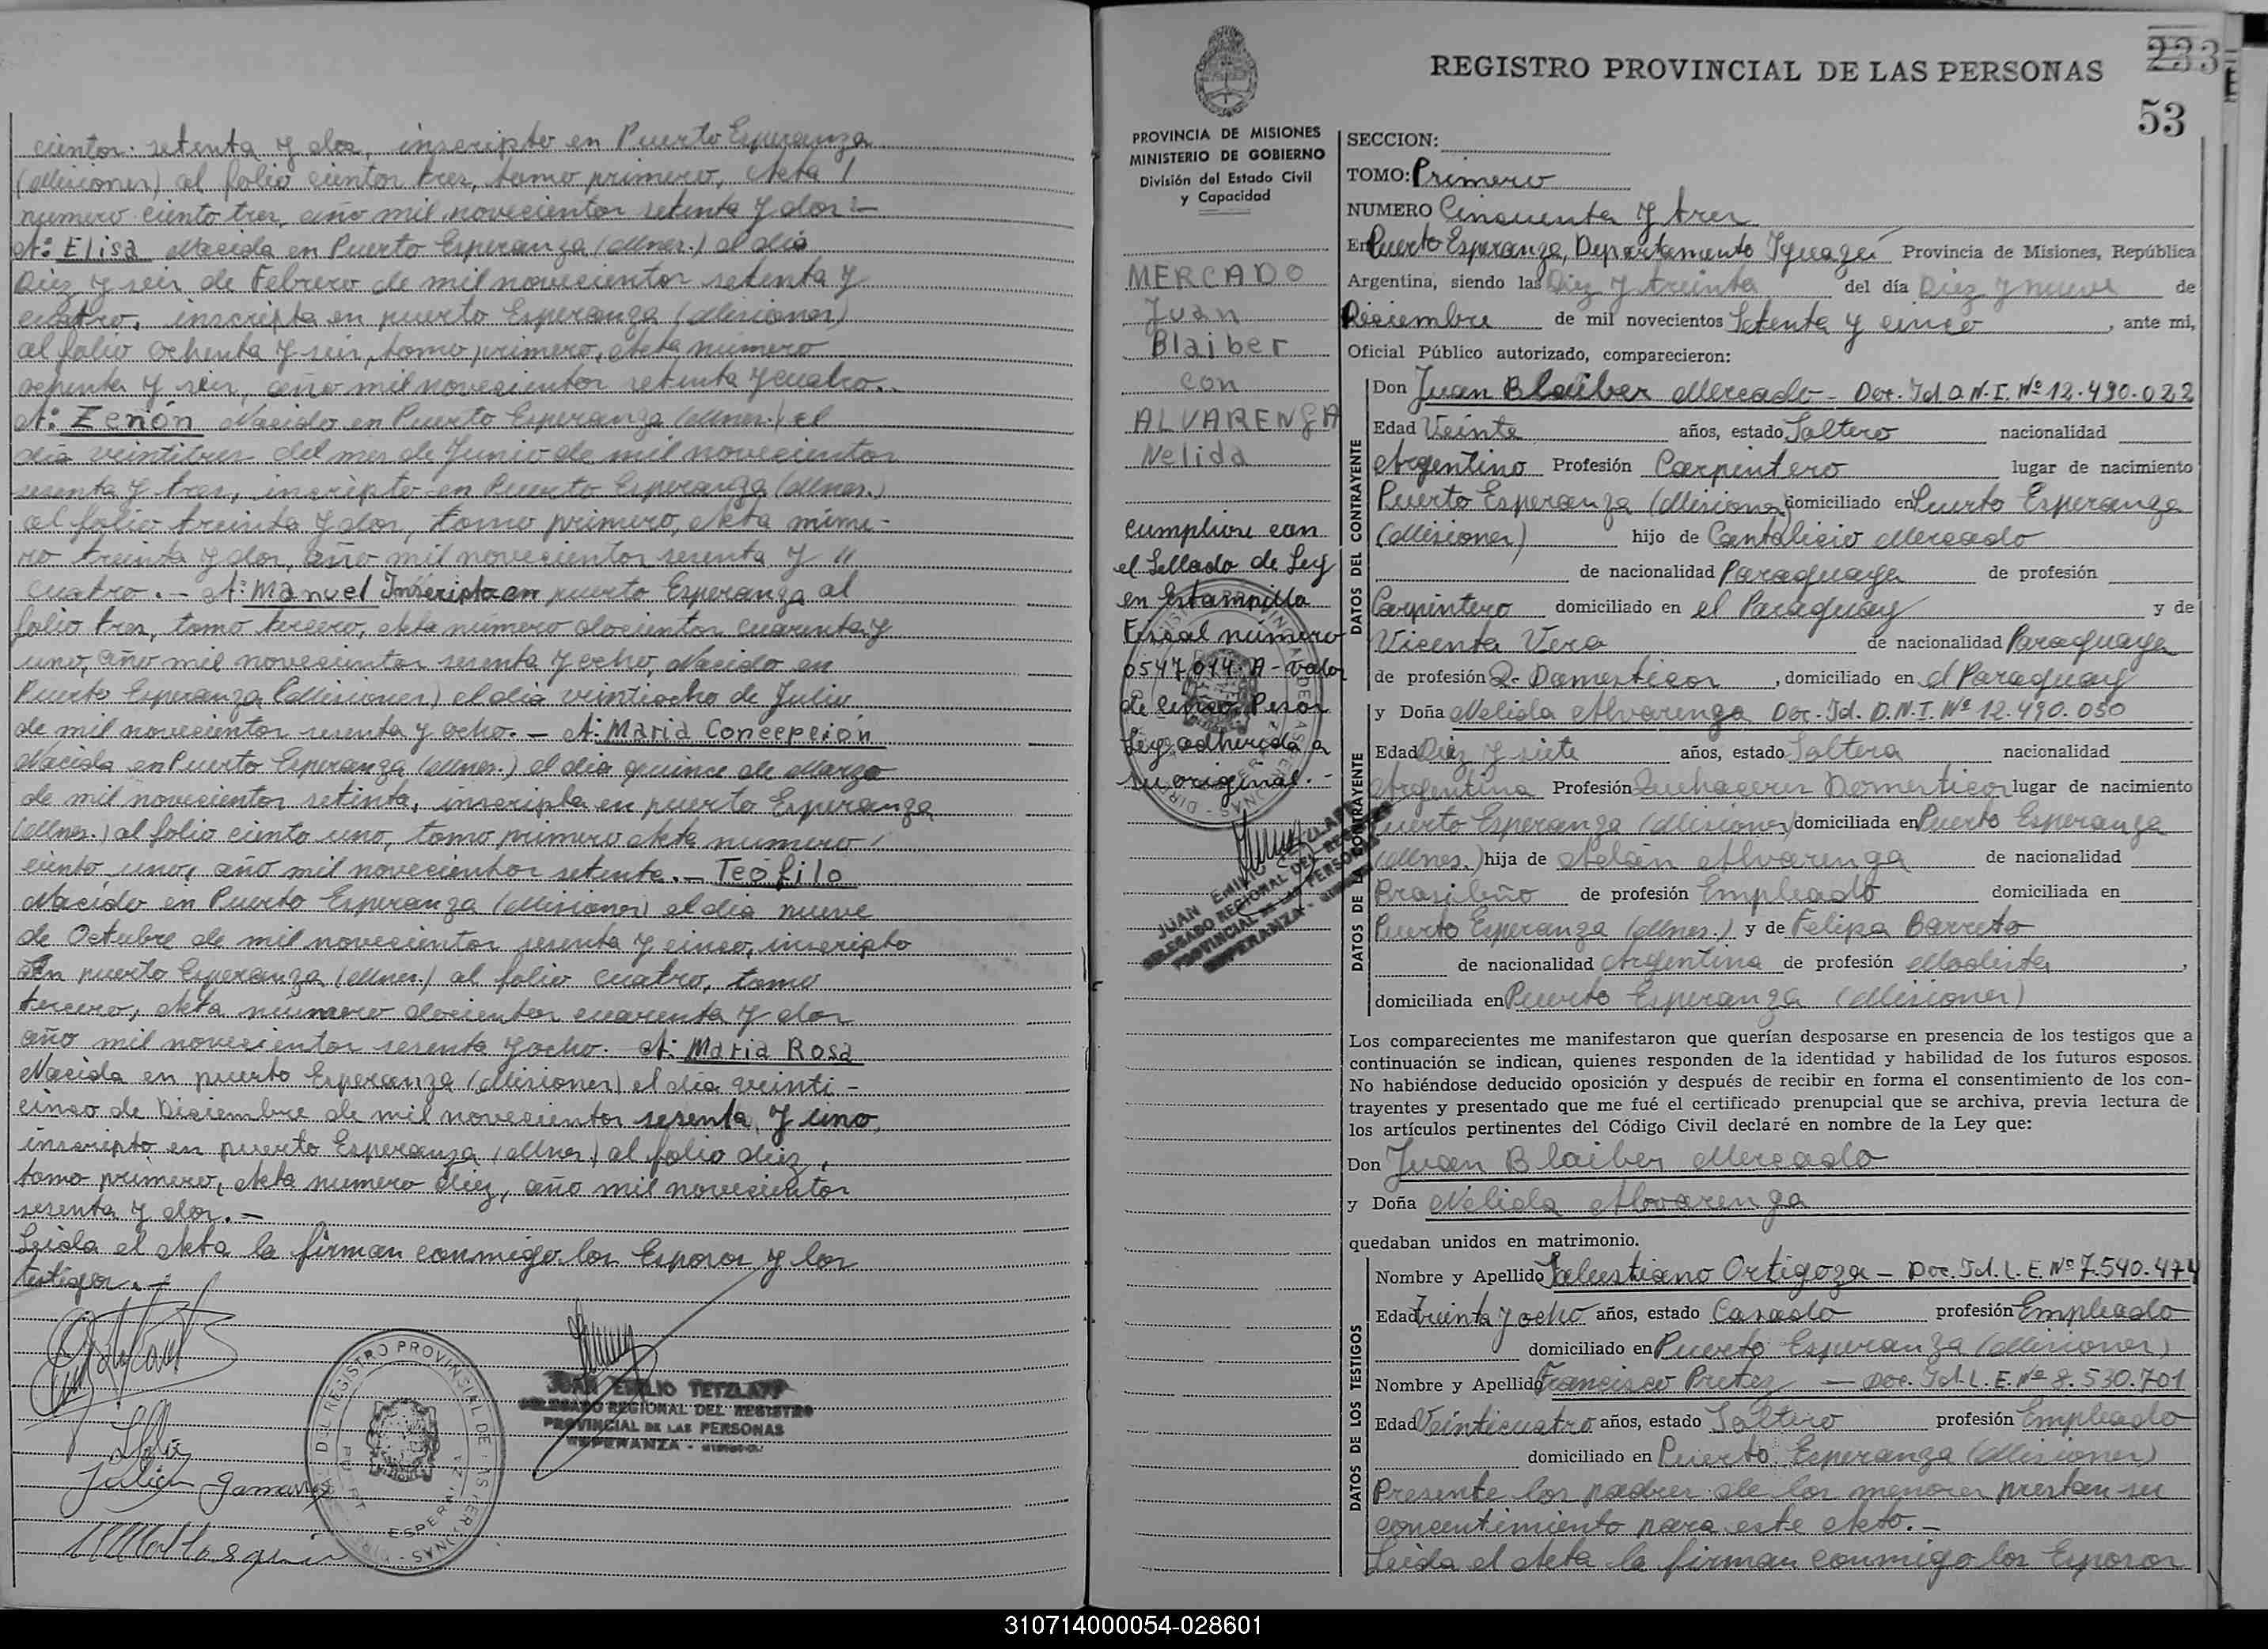 cientos setenta y dos, inscripto en Puerto Esperanza
(Misiones) al folio cientos tres, tomo primero, Acta /
numero ciento tres, año mil novecientos setenta y dos :-
A: Elisa Nacida en Puerto Esperanza (Mnes.) el día
Diez y seis de Febrero de mil novecientos setenta y
cuatro, inscripta en puerto Esperanza (Misiones)
al folio ochenta y seis, tomo primero, Acta número
y seis, año mil novecientos setenta y cuatro.-
A: Zenón Nacido en Puerto Esperanza (Mnes.) el
día veintitres del mes de Junio de mil novecientos
sesenta y tres, inscripto en Puerto Esperanza (Mnes.)
al folio treinta y dos, tomo primero, Acta núme-
ro treinta y dos, año mil novecientos sesenta y "
cuatro.- A: Manuel Inscripto en puerto Esperanza al
folio tres, tomo tercero, Acta número docientos cuarenta y
uno, año mil novecientos sesenta y ocho, Nacido en
Puerto Esperanza (Misiones) el día veintiocho de Julio
de mil novecientos sesenta y ocho.- A: Maria Concepción
Nacida en Puerto Esperanza (Mnes.) el día quince de Marzo
de mil novecientos setenta, inscripta en puerto Esperanza
(Mnes.) al folio ciento uno, tomo primero Acta numero /
ciento uno, año mil novecientos setenta.- Teófilo
Nacido en Puerto Esperanza (Misiones) el día nueve
de Octubre de mil novecientos sesenta y cinco, inscripto
En puerto Esperanza (Mnes.) al folio cuatro, tomo
tercero, Acta número docientos cuarenta y dos
año mil novecientos sesenta y ocho. A: Maria Rosa
Nacida en puerto Esperanza (Misiones) el día veinti-
cinco de Diciembre de mil novecientos sesenta y uno,
inscripto en puerto Esperanza (Mnes.) al folio diez,
tomo primero, Acta numero diez, año mil novecientos
sesenta y dos.-
Leida el Acta la firman conmigo los Esposos y los
testigos.-
Julian
JUAN EMILIO TETZLAFF
DELEGADO REGIONAL DEL REGISTRO
PROVINCIAL DE LAS PERSONAS
ESPERANZA - MISIONES
REGISTRO PROVINCIAL DE LAS PERSONAS
233
53
PROVINCIA DE MISIONES
MINISTERIO DE GOBIERNO
División del Estado Civil
y Capacidad
MERCADO
Juan
Blaiber
con
ALVARENGA
Nelida
cumpliose con
el Sellado de Ley
en Estampilla
Fiscal número
0547014 A - valor
de cinco Pesos
Ley adherida a
su original.-
JUAN EMILIO TETZLAFF
DELEGADO REGIONAL DEL REGISTRO
PROVINCIAL DE LAS PERSONAS
ESPERANZA - MISIONES
SECCION:
TOMO: Primero
NUMERO Cincuenta y tres
En Puerto Esperanza, Departamento Iguazú Provincia de Misiones, República
Argentina, siendo las Diez y treinta del día Diez y nueve de
Diciembre de mil novecientos Setenta y cinco, ante mi,
Oficial Público autorizado, comparecieron:
DATOS DEL CONTRAYENTE
Don Juan Blaiber Mercado - Doc. Id D.N.I. Nº 12.490.022
Edad Veinte años, estado Soltero nacionalidad
Argentino Profesión Carpintero lugar de nacimiento
Puerto Esperanza (Misiones) domiciliado en Puerto Esperanza
(Misiones) hijo de Cantalicio Mercado
de nacionalidad Paraguaya de profesión
Carpintero domiciliado en el Paraguay y de
Vicenta Vera de nacionalidad Paraguaya
de profesión Q. Domesticos, domiciliado en el Paraguay
DATOS DE LA CONTRAYENTE
y Doña Nelida Alvarenga Doc. Id. D.N.I. Nº 12.490.050
Edad Diez y siete años, estado Soltera nacionalidad
Argentina Profesión Quehaceres Domesticos lugar de nacimiento
Puerto Esperanza (Misiones) domiciliada en Puerto Esperanza
(Mnes.) hija de Adán Alvarenga de nacionalidad
Brasileño de profesión Empleado domiciliada en
Puerto Esperanza (Mnes.) y de Felipa Barreto
de nacionalidad Argentina de profesión Modista,
domiciliada en Puerto Esperanza (Misiones)
Los comparecientes me manifestaron que querían desposarse en presencia de los testigos que a
continuación se indican, quienes responden de la identidad y habilidad de los futuros esposos.
No habiéndose deducido oposición y después de recibir en forma el consentimiento de los con-
trayentes y presentado que me fué el certificado prenupcial que se archiva, previa lectura de
los artículos pertinentes del Código Civil declaré en nombre de la Ley que:
Don Juan Blaiber Mercado
y Doña Nelida Alvarenga
quedaban unidos en matrimonio.
DATOS DE LOS TESTIGOS
Nombre y Apellido Salustiano Ortigoza - Doc. Id. L.E. Nº 7.540.474
Edad Treinta y ocho años, estado Casado profesión Empleado
domiciliado en Puerto Esperanza (Misiones)
Nombre y Apellido Francisco Pretez - Doc. Id. L.E. Nº 8.530.701
Edad Veinticuatro años, estado Soltero profesión Empleado
domiciliado en Puerto Esperanza (Misiones)
Presente los padres de los menores prestan su
concentimiento para este Acto.-
Leida el Acta la firman conmigo los Esposos
310714000054-028601